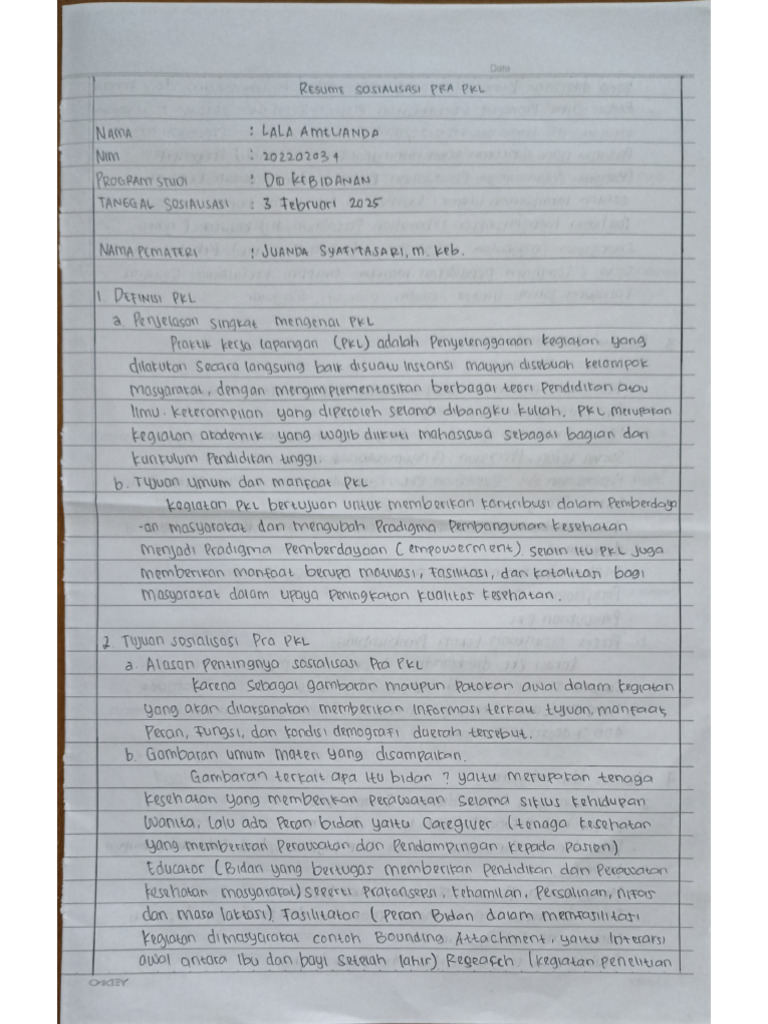 Date
RESUME SOSIALISASI PRA PKL
NAMA : LALA AMELIANDA
NIM : 202202034
PROGRAM STUDI : DIII KEBIDANAN
TANGGAL SOSIALISASI : 3 Februari 2025
NAMA PEMATERI : JUANDA SYAFITASARI, M. Keb.
1. DEFINISI PKL
a. Penjelasan singkat mengenai PKL
Praktik kerja lapangan (PKL) adalah Penyelenggaraan kegiatan yang
dilakukan secara langsung baik disuatu instansi maupun disebuah kelompok
masyarakat, dengan mengimplementasikan berbagai teori Pendidikan atau
ilmu. keterampilan yang diperoleh selama dibangku kuliah. PKL merupakan
kegiatan akademik yang wajib diikuti mahasiswa sebagai bagian dari
kurikulum Pendidikan tinggi.
b. Tujuan umum dan manfaat PKL
kegiatan PKL bertujuan untuk memberikan kontribusi dalam Pemberdaya
-an masyarakat dan mengubah Pradigma Pembangunan kesehatan
menjadi Pradigma Pemberdayaan (empowerment). selain itu PKL juga
memberikan manfaat berupa motivasi, Fasilitasi, dan katalitas bagi
masyarakat dalam upaya Peningkatan kualitas kesehatan.
2. Tujuan sosialisasi Pra PKL
a. Alasan Pentingnya sosialisasi Pra PKL
karena sebagai gambaran maupun Patokan awal dalam kegiatan
yang akan dilaksanakan memberikan informasi terkait tujuan, manfaat,
Peran, Fungsi, dan kondisi demografi daerah tersebut.
b. Gambaran umum materi yang disampaikan.
Gambaran terkait apa itu bidan ? yaitu merupakan tenaga
kesehatan yang memberikan Perawatan selama siklus kehidupan
wanita, lalu ada Peran bidan yaitu Caregiver (tenaga kesehatan
yang memberikan Perawatan dan Pendampingan kepada Pasien)
Educator (Bidan yang bertugas memberikan Pendidikan dan Perawatan
kesehatan masyarakat) seperti Prakonsepsi, kehamilan, Persalinan, nifas
dan masa laktasi). Fasilitator (Peran Bidan dalam memfasilitasi
kegiatan dimasyarakat contoh Bounding Attachment, yaitu Interaksi
awal antara Ibu dan bayi setelah lahir) Research (kegiatan penelitian